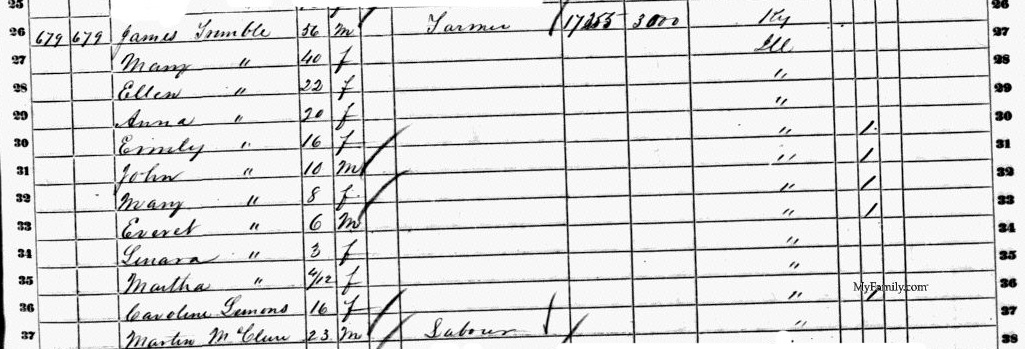 25 26
26 679 679 James Trimble 56 m Farmer 17255 3000 Ky 27
27 Mary " 40 f Ill 28
28 Ellen " 22 f " 29
29 Anna " 20 f " 30
30 Emily " 16 f " 1 31
31 John " 10 m " 1 32
32 Mary " 8 f " 1 33
33 Everet " 6 m " 1 34
34 Linara " 3 f " 35
35 Martha " 4/12 f " 36
MyFamily.com
36 Caroline Lemons 16 f " 1 37
37 Martin McClure 23 m Labour " 38